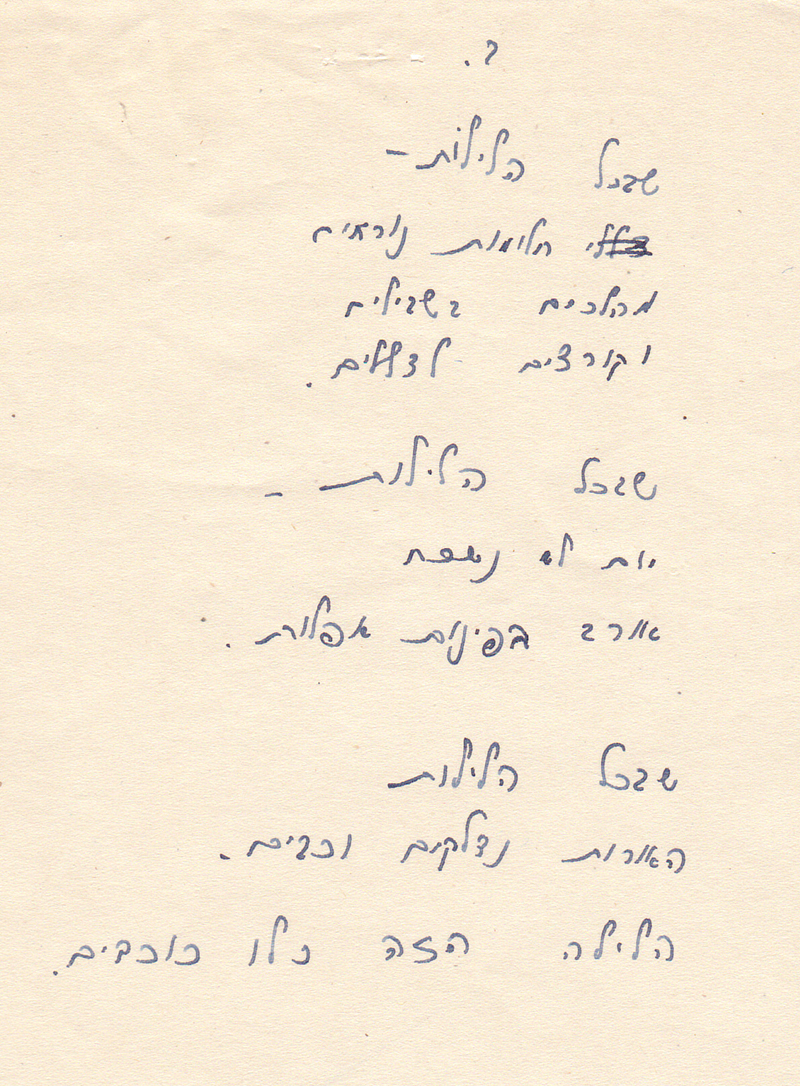 ב.
שבכל הלילות –
חלומות נוראים
מהלכים בשבילים
וקורצים לצללים.
שבכל הלילות –
יום לא נשכח
אורב בפינות אפלות.
שבכל הלילות
האורות נדלקים וכבים.
הלילה הזה כלו כוכבים.